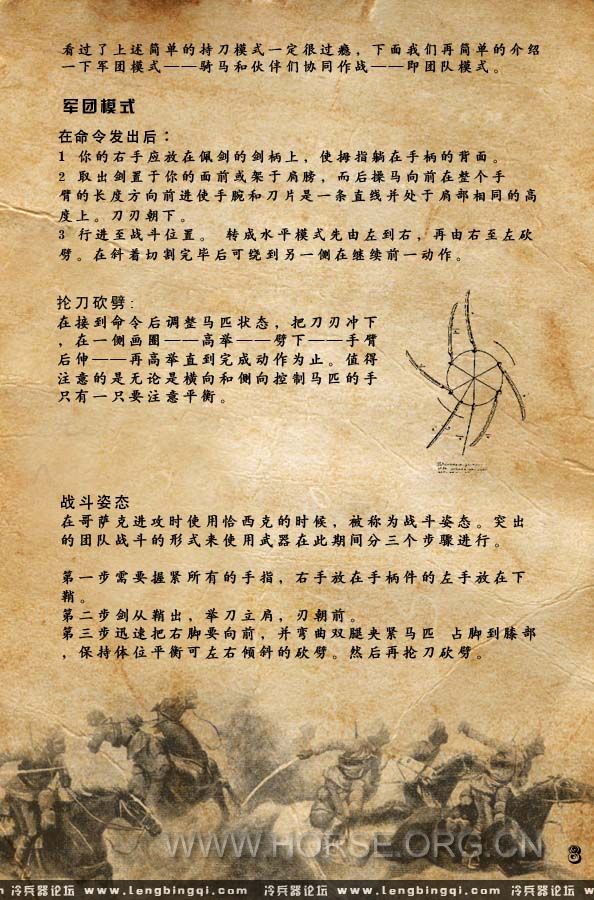 看过了上述简单的持刀模式一定很过瘾，下面我们再简单的介绍
一下军团模式——骑马和伙伴们协同作战——即团队模式。
军团模式
在命令发出后：
1 你的右手应放在佩剑的剑柄上，使拇指躺在手柄的背面。
2 取出剑置于你的面前或架于肩膀，而后操马向前在整个手
臂的长度方向前进使手腕和刀片是一条直线并处于肩部相同的高
度上。刀刃朝下。
3 行进至战斗位置。 转成水平模式先由左到右，再由右至左砍
劈。在斜着切割完毕后可绕到另一侧在继续前一动作。
抡刀砍劈：
在接到命令后调整马匹状态，把刀刃冲下
，在一侧画圈——高举——劈下——手臂
后伸——再高举直到完成动作为止。值得
注意的是无论是横向和侧向控制马匹的手
只有一只要注意平衡。
战斗姿态
在哥萨克进攻时使用恰西克的时候，被称为战斗姿态。突出
的团队战斗的形式来使用武器在此期间分三个步骤进行。
第一步需要握紧所有的手指，右手放在手柄件的左手放在下
鞘。
第二步剑从鞘出，举刀立肩，刃朝前。
第三步迅速把右脚要向前，并弯曲双腿夹紧马匹 占脚到膝部
，保持体位平衡可左右倾斜的砍劈。然后再抡刀砍劈。
WWW.HORSE.ORG.CN
8
冷兵器论坛 www.lengbingqi.com 冷兵器论坛 www.lengbingqi.com 冷兵器论坛 www.lengbingqi.com